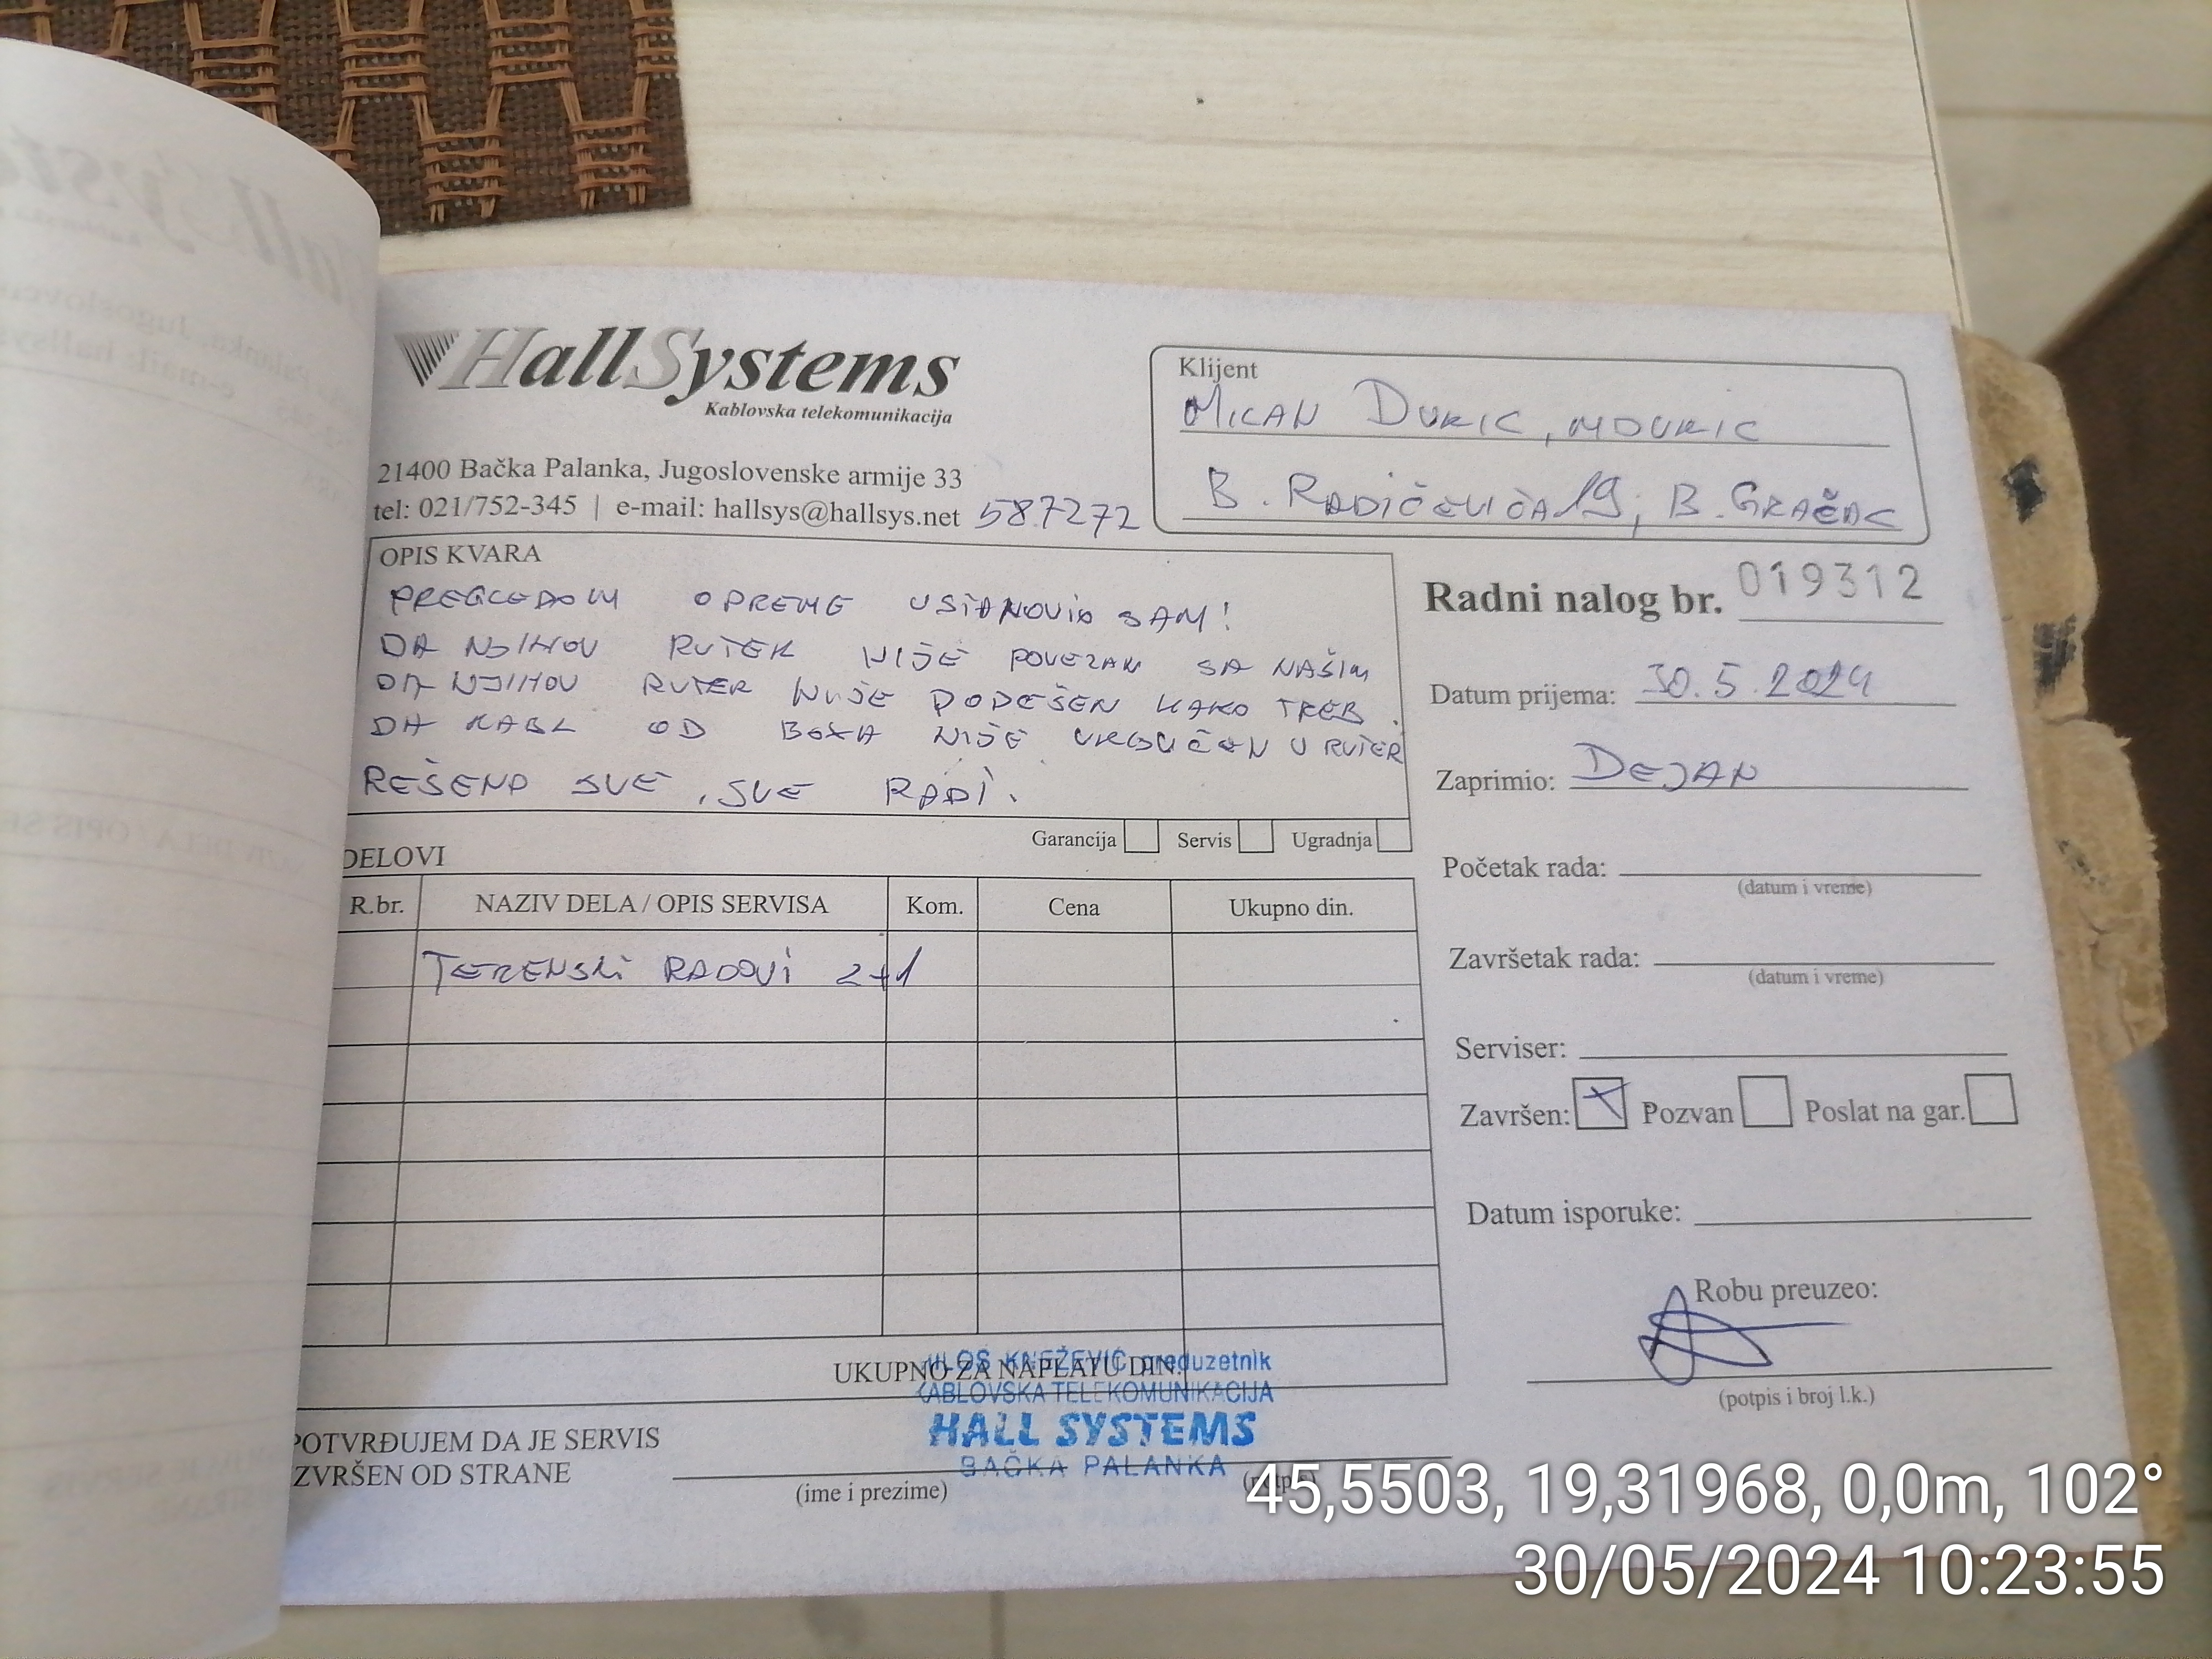 HallSystems
Kablovska telekomunikacija
21400 Bačka Palanka, Jugoslovenske armije 33
tel: 021/752-345 | e-mail: hallsys@hallsys.net 587272
Klijent
MILAN DURIC, MDURIC
B. RADIČEVIĆA 19, B. GRAČAC
OPIS KVARA
PREGLEDOM OPREME USTANOVIO SAM!
DA NJIHOV RUTER NIJE POVEZAN SA NAŠIM
DA NJIHOV RUTER NIJE PODEŠEN KAKO TREB.
DA KABL OD BOXA NIJE UKLJUČEN U RUTER
REŠENO SVE, SVE RADI.
Garancija Servis Ugradnja
Radni nalog br. 019312
Datum prijema: 30.5.2024
Zaprimio: DEJAN
Početak rada:
(datum i vreme)
Završetak rada:
(datum i vreme)
Serviser:
Završen: Pozvan Poslat na gar.
Datum isporuke:
Robu preuzeo:
(potpis i broj l.k.)
DELOVI
R.br. NAZIV DELA / OPIS SERVISA Kom. Cena Ukupno din.
TERENSKI RADOVI 2+1
UKUPNO ZA NAPLATU DIN.
MILOŠ KNEŽEVIĆ preduzetnik
KABLOVSKA TELEKOMUNIKACIJA
HALL SYSTEMS
BAČKA PALANKA
POTVRĐUJEM DA JE SERVIS
IZVRŠEN OD STRANE
(ime i prezime) (potpis)
45,5503, 19,31968, 0,0m, 102°
30/05/2024 10:23:55